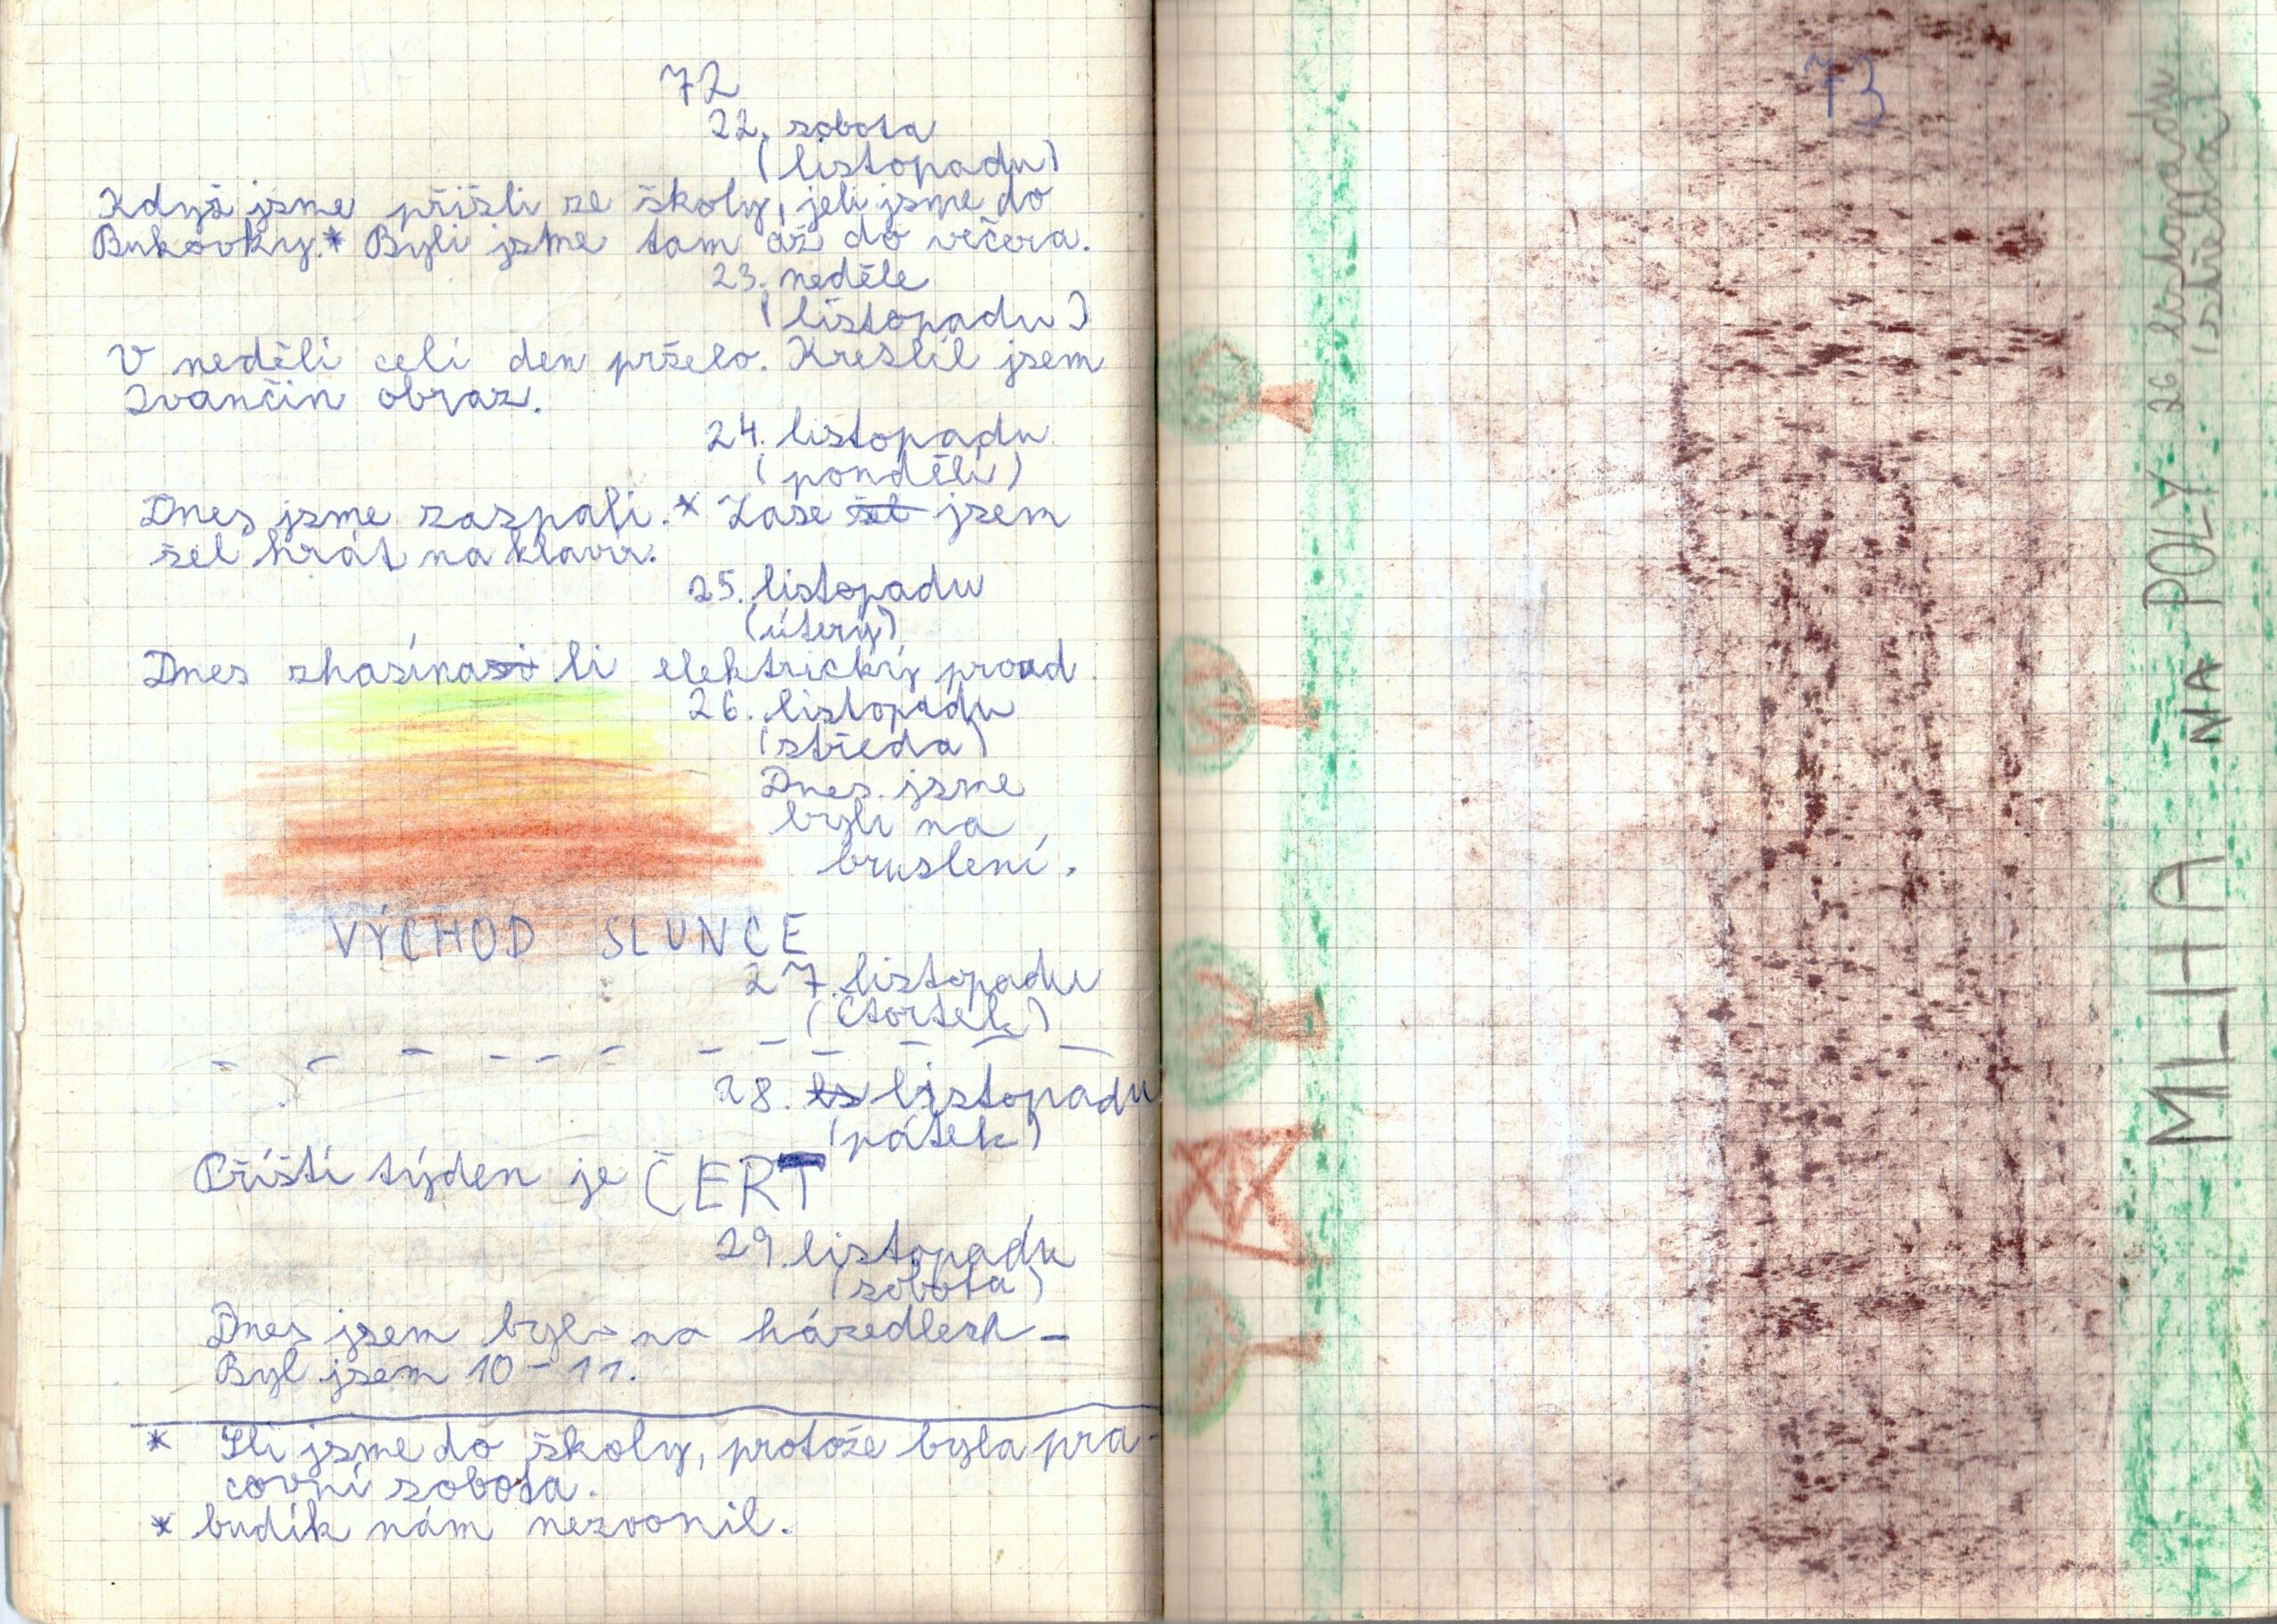 72
22. sobota
(listopadu)
Když jsme přišli ze školy, jeli jsme do
Bukovky.* Byli jsme tam až do večera.
23. neděle
(listopadu)
V neděli celi den pršelo. Kreslil jsem
Ivančin obraz.
24. listopadu
(pondělí)
Dnes jsme zaspali.* Zase šel jsem
šel hrát na klavír.
25. listopadu
(úterý)
Dnes zhasínali elektrický proud
26. listopadu
(středa)
Dnes jsme
byli na
bruslení.
VÝCHOD SLUNCE
27. listopadu
(čtvrtek)
28. ls listopadu
(pátek)
Příští týden je ČERT
29. listopadu
(sobota)
Dnes jsem byl na házedlech –
Byl jsem 10 – 11.
* Šli jsme do školy, protože byla pra-
covní sobota.
* budík nám nezvonil.
73
MLHA NA POLY 26 listopadu
(středa)